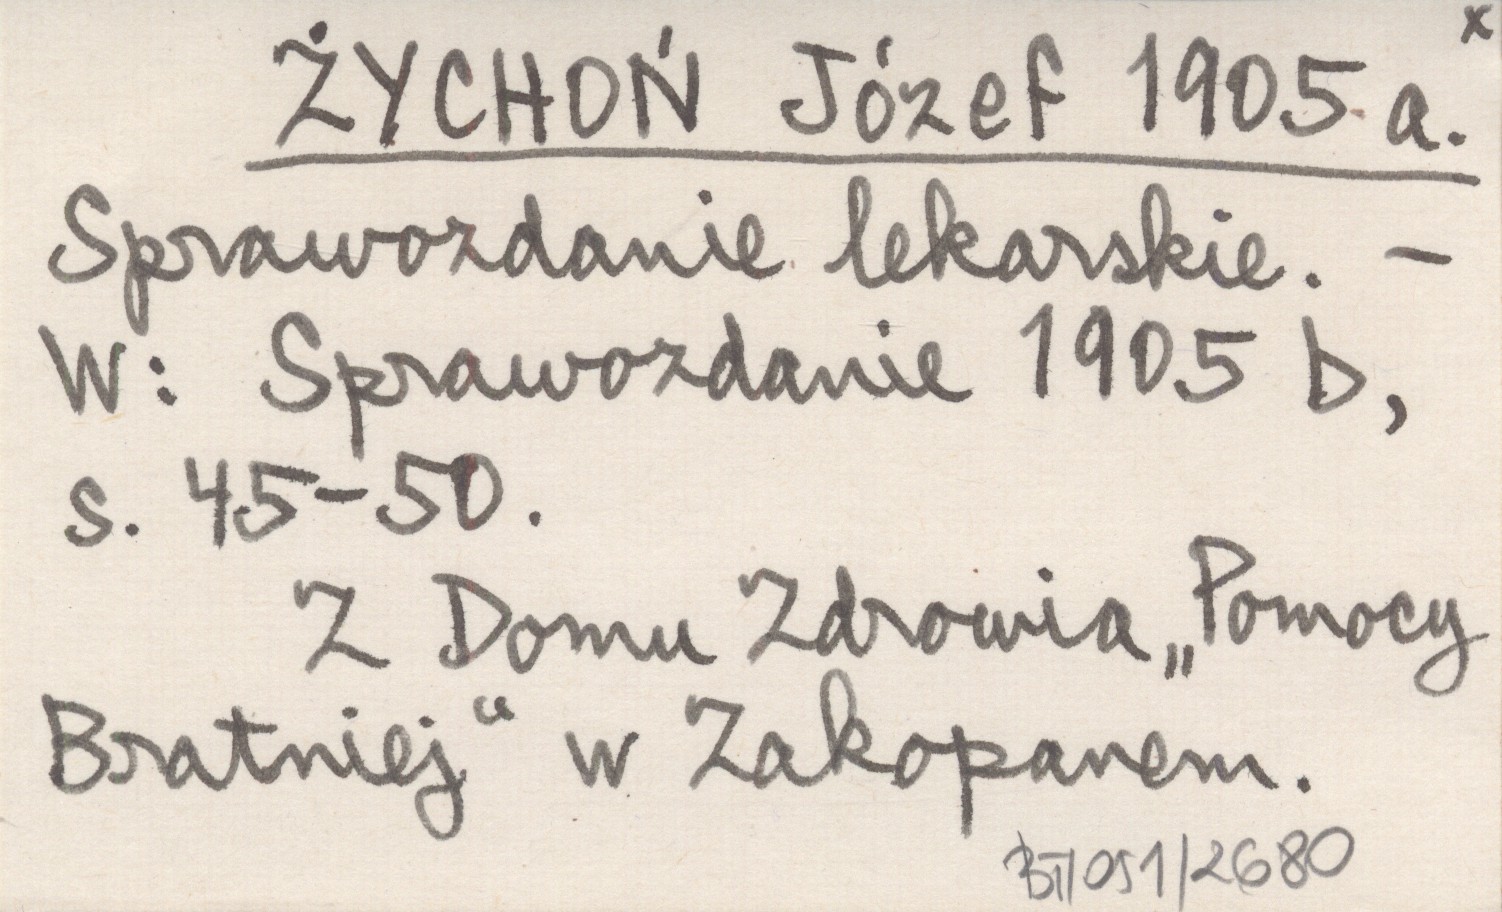 x
ŻYCHOŃ Józef 1905 a.
Sprawozdanie lekarskie. –
W: Sprawozdanie 1905 b,
s. 45–50.
Z Domu Zdrowia „Pomocy
Bratniej“ w Zakopanem.
BT/051/2680